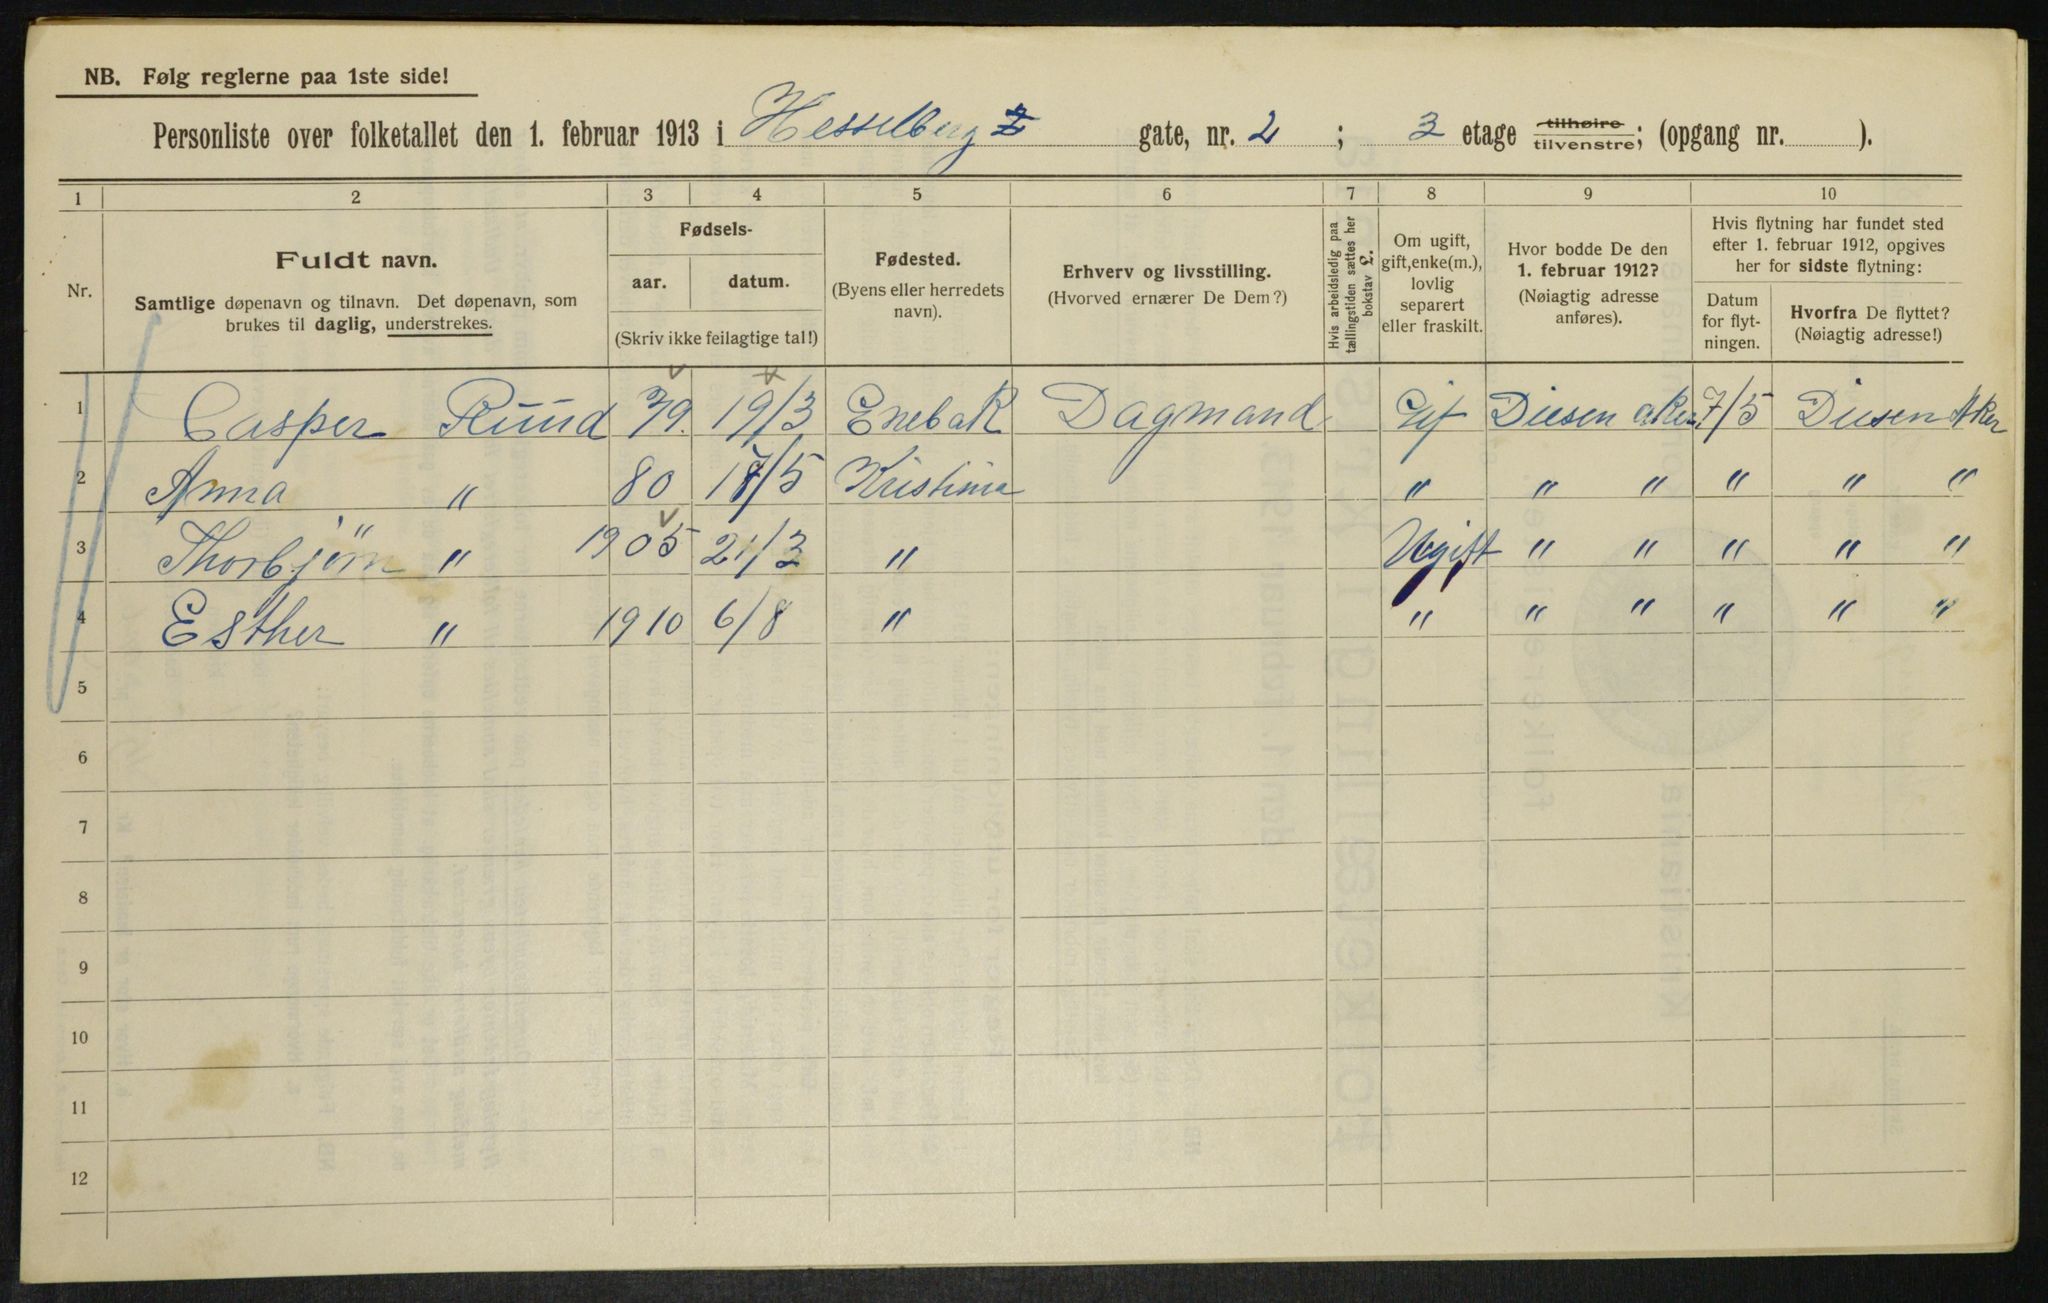 NB. Følg reglerne paa 1ste side!
Personliste over folketallet den 1. februar 1913 i Hesselberg gate, nr. 2 ; 3 etage tilhøire tilvenstre; (opgang nr. ).
1 2 3 4 5 6 7 8 9 10
Nr.
Fuldt navn.
Samtlige døpenavn og tilnavn. Det døpenavn, som
brukes til daglig, understrekes.
Fødsels-
aar. datum.
(Skriv ikke feilagtige tal!)
Fødested.
(Byens eller herredets
navn).
Erhverv og livsstilling.
(Hvorved ernærer De Dem?)
Hvis arbeidsledig paa
tællingstiden sættes her
bokstav L.
Om ugift,
gift, enke(m.),
lovlig
separert
eller fraskilt.
Hvor bodde De den
1. februar 1912?
(Nøiagtig adresse
anføres).
Hvis flytning har fundet sted
efter 1. februar 1912, opgives
her for sidste flytning:
Datum
for flyt-
ningen.
Hvorfra De flyttet?
(Nøiagtig adresse!)
1 Casper Ruud 79. 19/3 Enebak Dagmand Gift Diesen Aker 7/5 Diesen Aker
2 Anna " 80 /5 Kristinia " " " " " "
3 Thorbjørn " 1905 21/3 " Ugift " " " " "
4 Esther " 1910 6/8 " " " " " " "
5
6
7
8
9
10
11
12